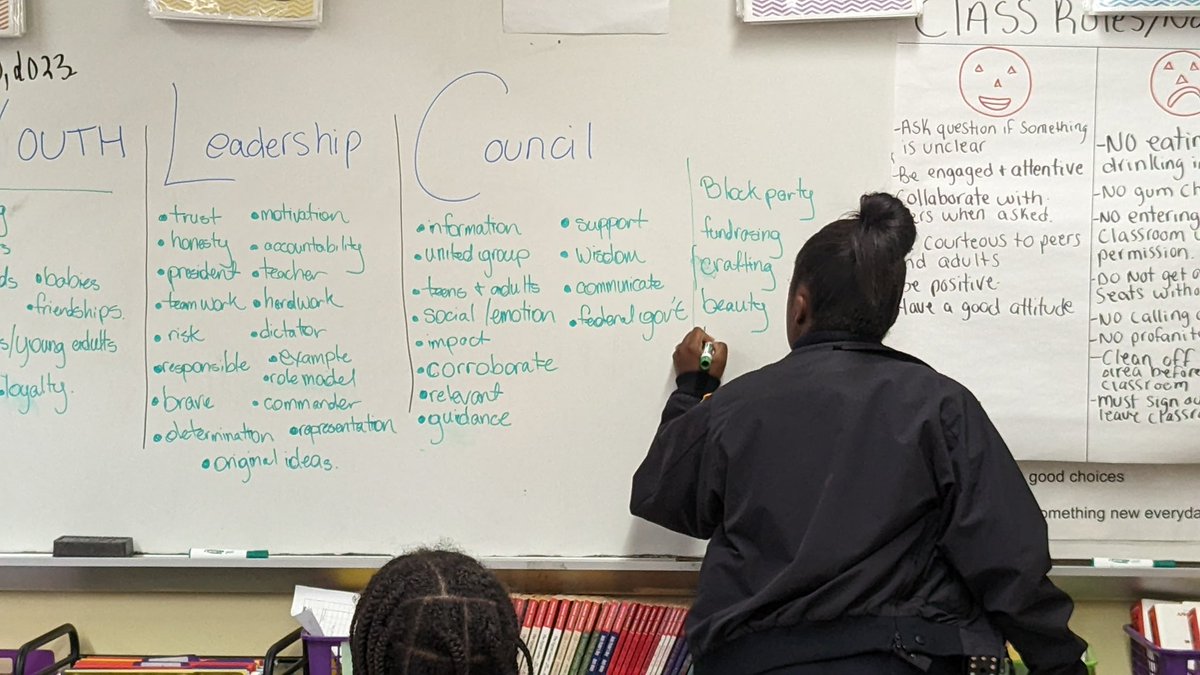 2023
YOUTH
babies
friendships.
s/young adults
loyalty.
Leadership
• trust
• honesty
• president
• teamwork
• risk
• responsible
• brave
• determination
• motivation
• accountability
• teacher
• hardwork
• dictator
• example
• role model
• commander
• representation
• original ideas.
Council
• information
• united group
• teens + adults
• social / emotion
• impact
• corroborate
• relevant
• guidance
• support
• wisdom
• communicate
• federal gov't
Block party
fundrasing
crafting
beauty
CLASS
-ASK question if something
is unclear
-Be engaged + attentive
Collaborate with
when asked.
courteous to peers
and adults
be positive
Have a good attitude
-NO
drinking
-NO gum
-NO entering
classroom
permission.
-DO NOT get
seats
-NO calling
-NO
-Clean off
area before
classroom
-must sign
leave
good choices
something new everyday